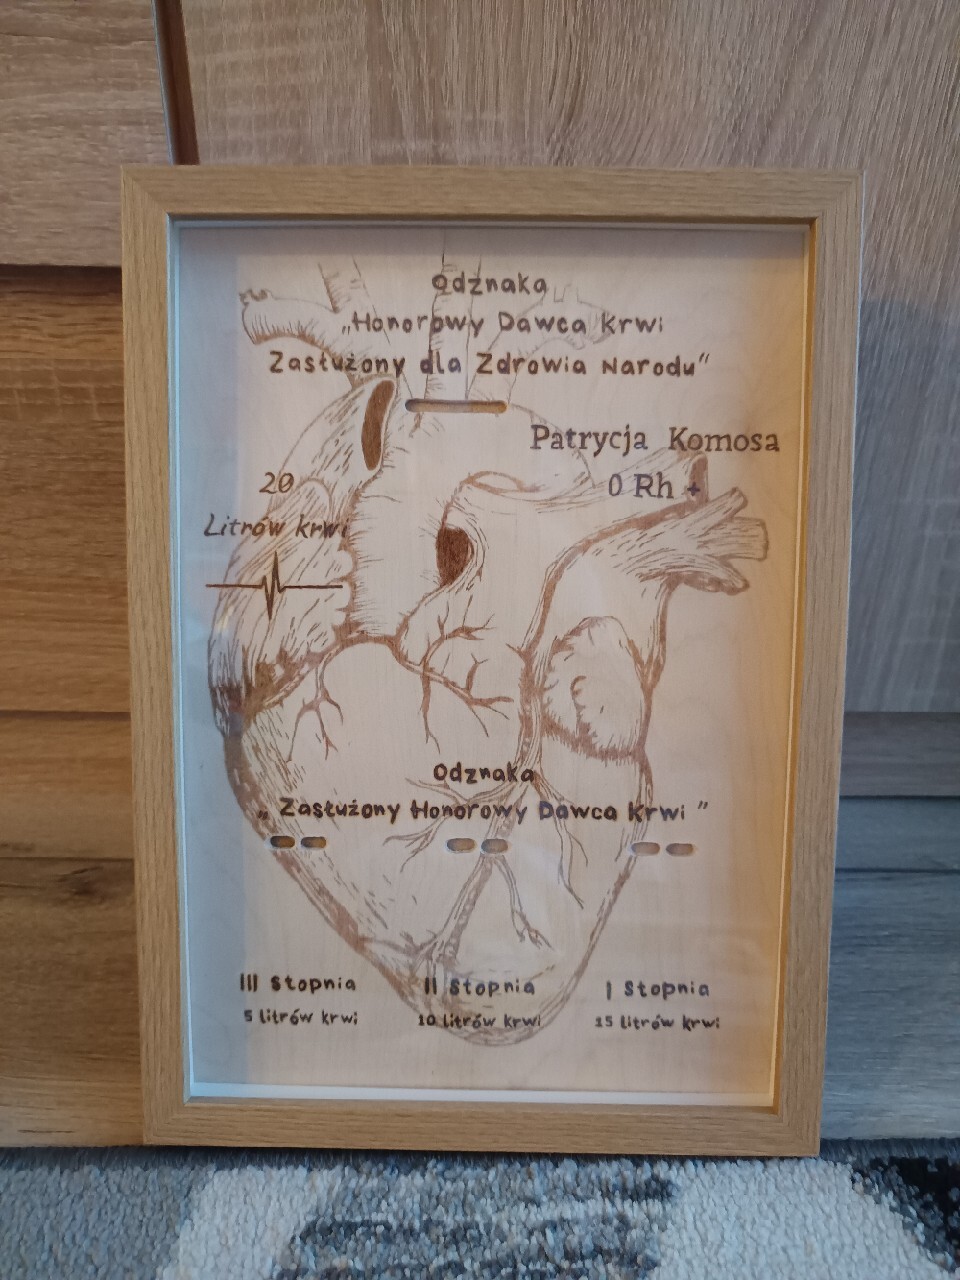 Odznaka
„Honorowy Dawca Krwi
Zasłużony dla Zdrowia Narodu”
Patrycja Komosa
0 Rh +
20
Litrów krwi
Odznaka
„ Zasłużony Honorowy Dawca Krwi ”
III Stopnia
II Stopnia
I Stopnia
5 litrów krwi
10 litrów krwi
15 litrów krwi